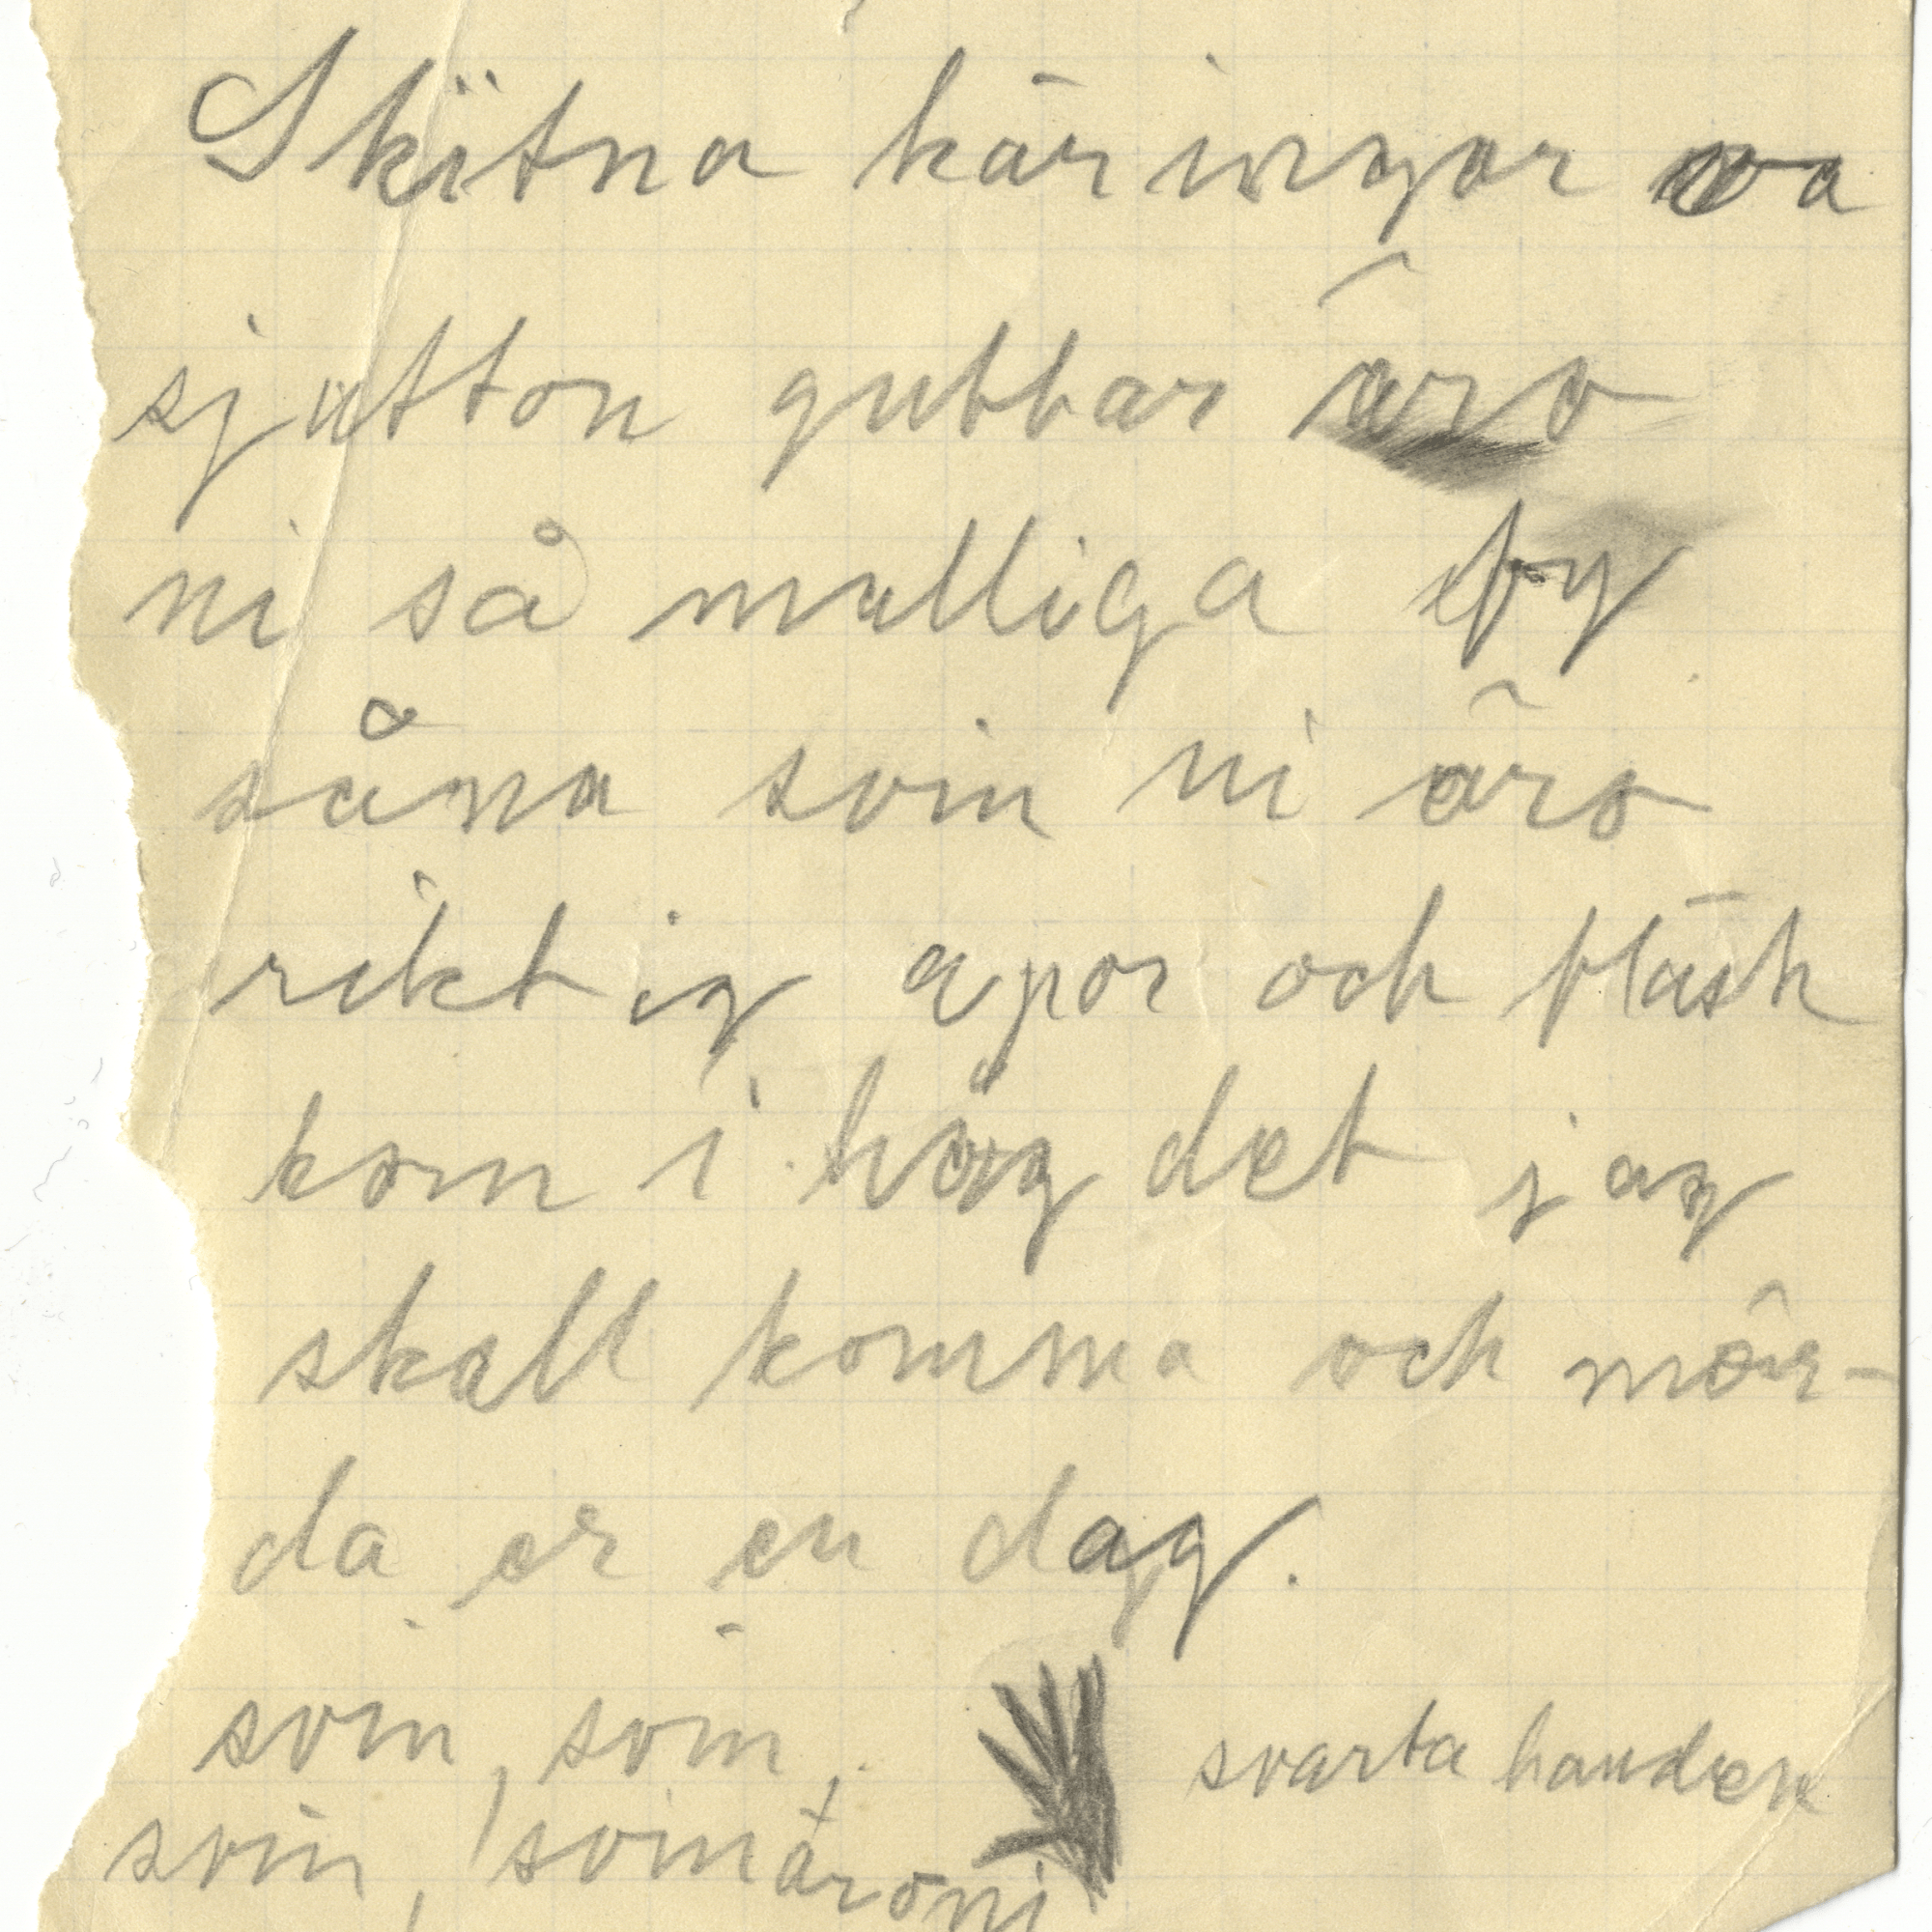 Skitna käringar va
sjutton gubbar äro
ni så mulliga fy
såna svin ni äro
riktig apor och fläsk
kom i håg det jag
skall komma och mör-
da er en dag.
svin, svin,
svarta handen
svin, svin äro ni